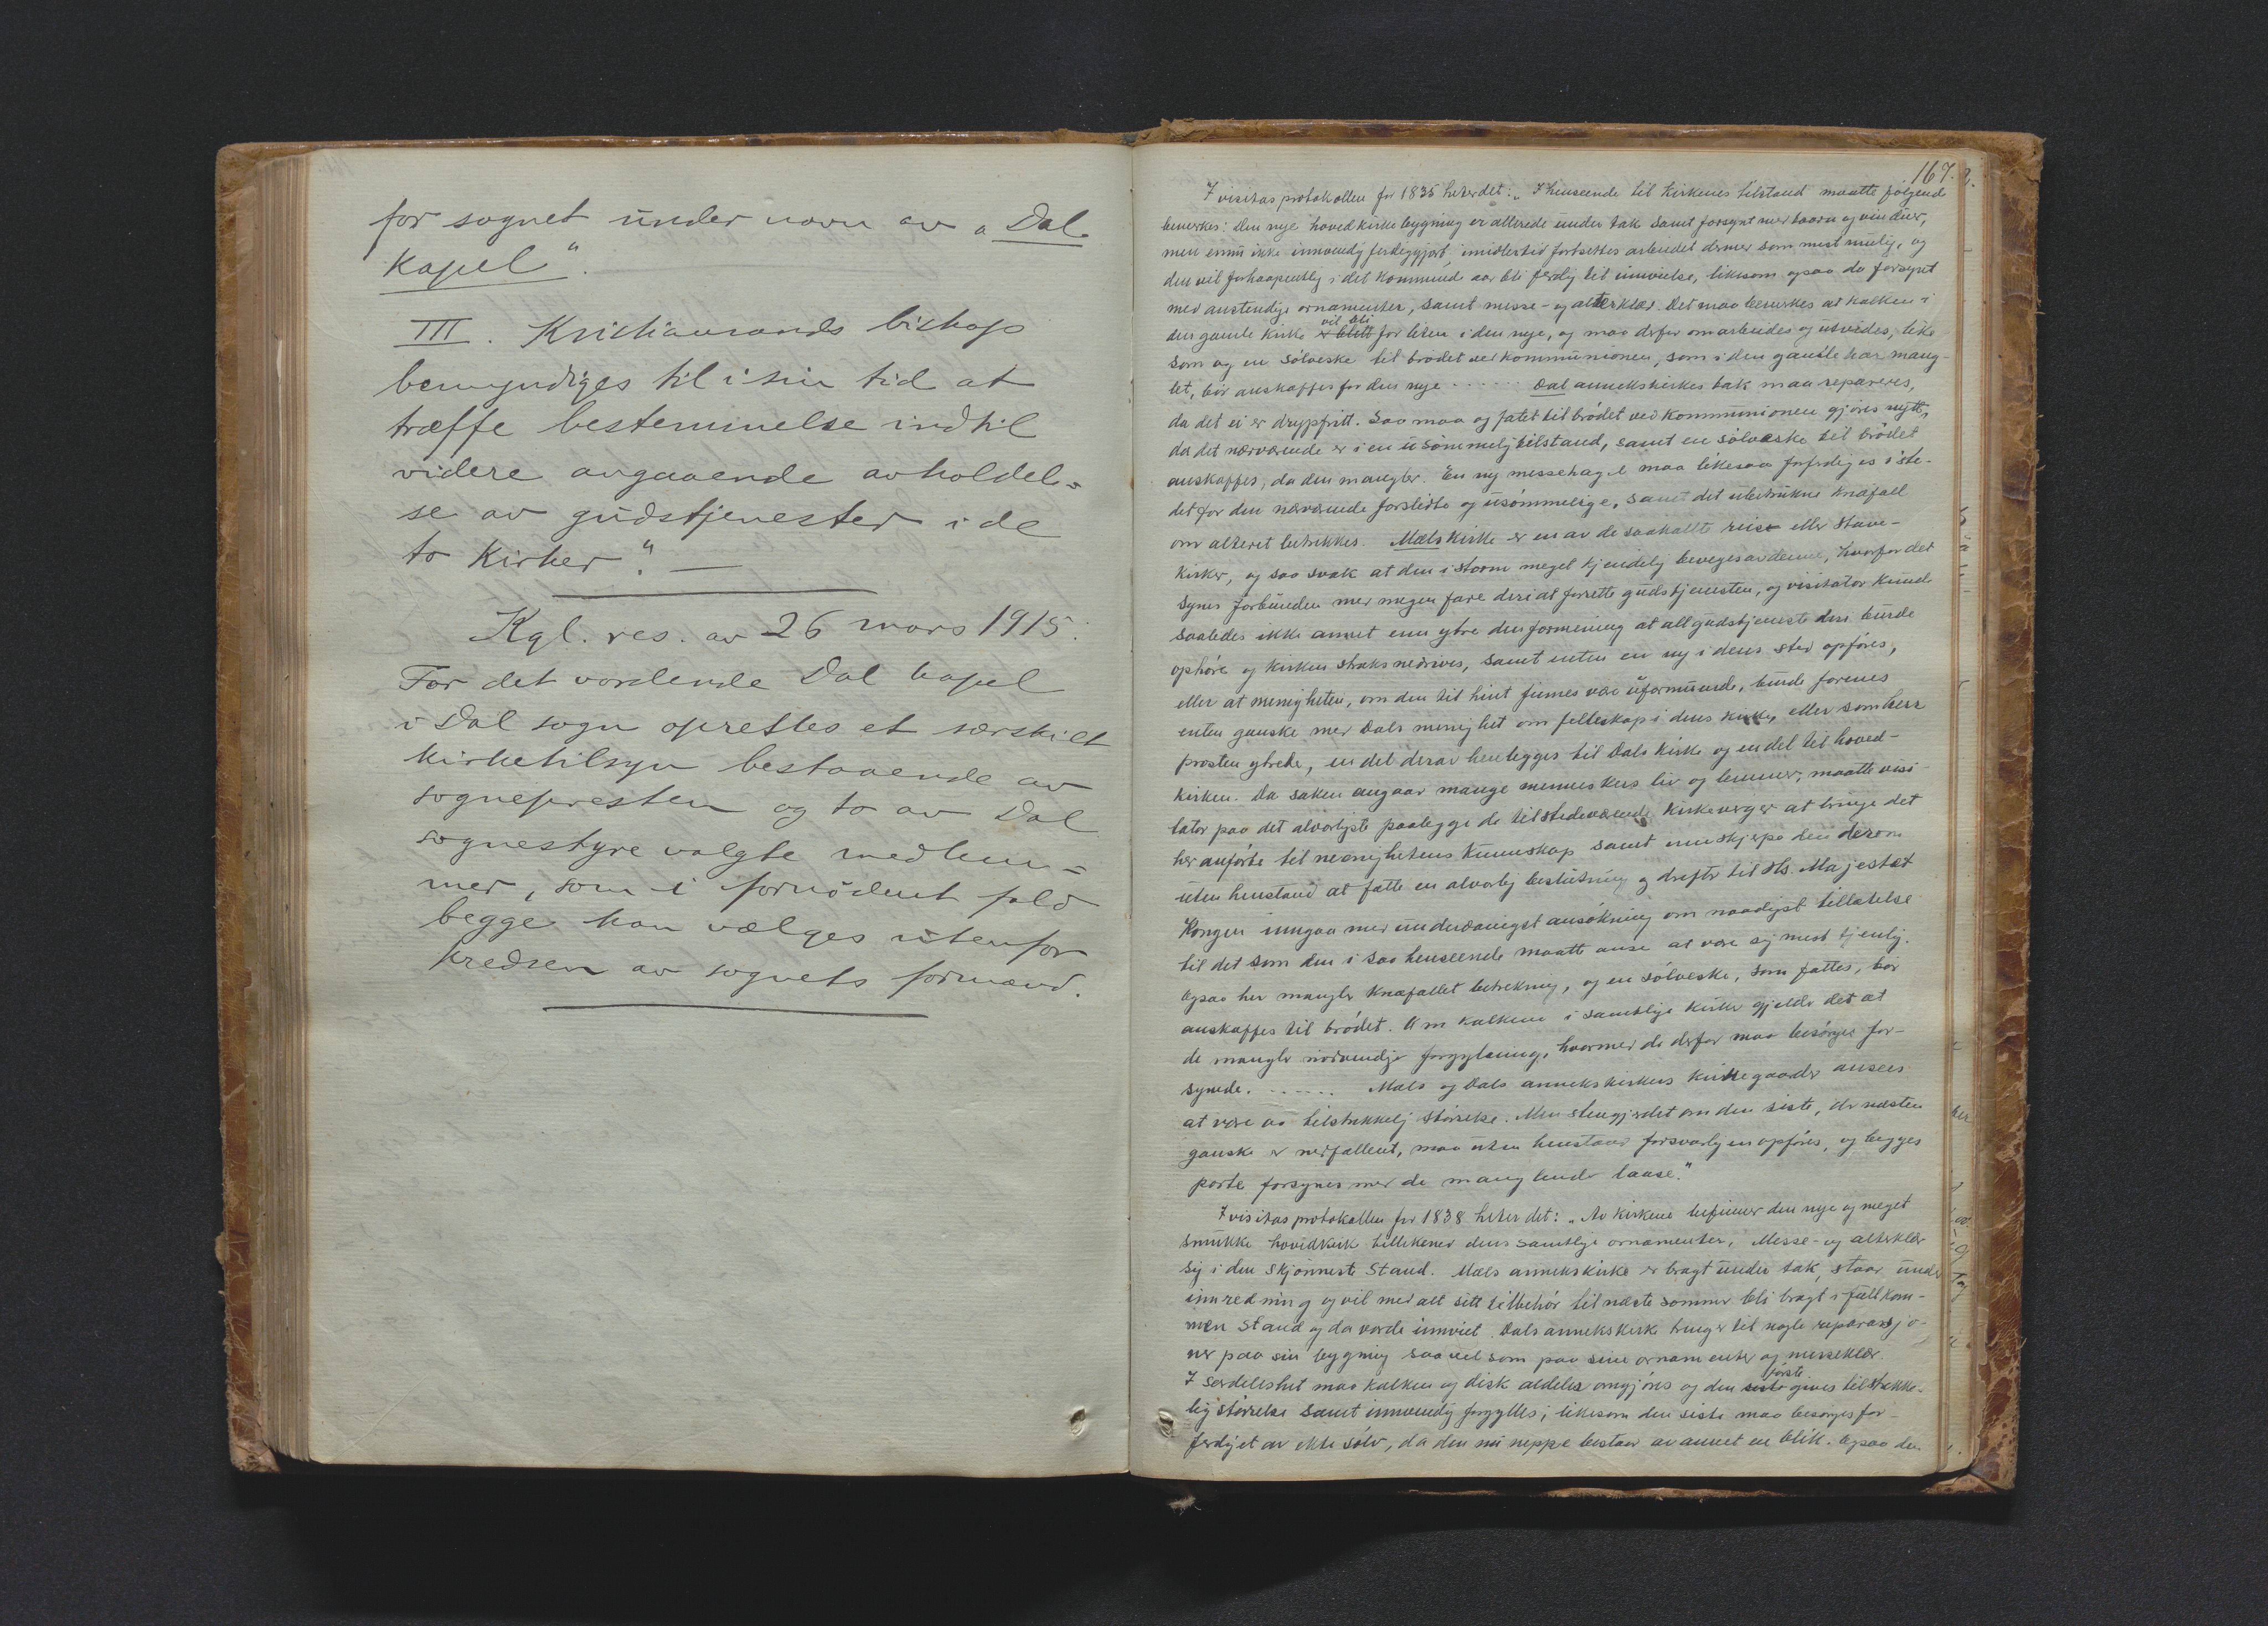 for sognet under navn av „Dal
Kapel".
III. Kristiansands biskop
bemyndiges til i sin tid at
træffe bestemmelse indtil
videre angaaende avholdel=
se av gudstjenester i de
to Kirker." —
Kgl. res. av 26 mars 1915:
For det vordende Dal kapel
i Dal sogn oprettes et særskilt
kirketilsyn bestaaende av
sognepresten og to av Dal
sognestyre valgte medlem=
mer, som i fornödent fald
begge kan vælges utenfor
kredsen av sognets formænd.
167.
I visitasprotokollen for 1835 heter det: „I henseende til kirkenes tilstand maatte følgende
bemerkes: Den nye hovedkirkebygning er allerede under tak samt forsynt med taarn og vinduer,
men ennu ikke innvendig ferdiggjort, imidlertid fortsettes arbeidet dermed som mest mulig, og
den vil forhaapentlig i det kommende aar bli ferdig til innvielse, likesom ogsaa da forsynt
med anstendige ornamenter, samt messe- og alterklær. Det maa bemerkes at kalken i
den gamle kirke vil bli for liten i den nye, og maa derfor omarbeides og utvides, like
som og en sölveske til brödet ved kommunionen, som i den gamle har mang-
let, bör anskaffes for den nye ...... Dal annekskirkes tak maa repareres,
da det ei er dryppfritt. Saa maa og fatet til brödet ved kommunionen gjöres nytt,
da det nærværende er i en usömmelig tilstand, samt en sölveske til brödet
anskaffes, da den mangler. En ny messehagel maa likesaa forferdiges i ste-
det for den nærværende forslitte og usömmelige, samt det ubetrukne knæfall
om alteret betrekkes. Mæls kirke er en av de saakallte reise eller stave-
kirker, og saa svak at den i storm meget kjendelig beveges av denne, hvorfor det
synes forbunden med megen fare deri at forrette gudstjenesten, og visitator kunde
saaledes ikke annet enn ytre den formening at all gudstjeneste deri burde
ophöre og kirken straks nedrives, samt enten en ny i dens sted opföres,
eller at menigheten, om den til hint finnes være uformuende, burde forenes
enten ganske med Dals menighet om felleskap i dens kirke, eller som herr
prosten ytrede, en del derav henlegges til Dals kirke og en del til hoved-
kirken. Da saken angaar mange menneskers liv og lemmer, maatte visi-
tator paa det alvorligste paalegge de tilstedeværende kirkeverger at bringe det
her anförte til menighetens kunnskap samt innskjerpe den derom
uten henstand at fatte en alvorlig beslutning og derefter til Hs. Majestæt
Kongen inngaa med underdanigst ansökning om naadigst tillatelse
til det som den i saa henseende maatte anse at være sig mest tjenlig.
Ogsaa her mangler knæfallet betrekning, og en sölveske, som fattes, bör
anskaffes til brödet. Om kalkene i samtlige kirker gjelder det at
de mangler nödvendig forgyldning, hvormed de derfor maa besörges for-
synede. ...... Mæls og Dals annekskirkers kirkegaarder ansees
at være av tilstrekkelig störrelse. Men stengjerdet om den siste, der næsten
ganske er nedfallent, maa uten henstand forsvarlig en opföres, og begges
porte forsynes med de manglende laase."
I visitasprotokollen for 1838 heter det: „Av kirkene befinner den nye og meget
smukke hovedkirke tillikemed dens samtlige ornamenter, Messe- og alterklær
sig i den skjönneste stand. Mæls annekskirke er bragt under tak, staar under
innredning og vil med alt sitt tilbehör til næste sommer bli bragt i fullkom-
men stand og da vorde innviet. Dals annekskirke trenger til nogle reparasjo-
ner paa sin bygning saavel som paa sine ornamenter og messeklær.
I særdeleshet maa kalken og disk aldeles omgjöres og den förste gives tilstrekke-
lig störrelse samt innvendig forgylles; likesom den siste maa besörges for-
ferdiget av ekte sölv, da den nu neppe bestaar av annet en blik. Ogsaa den